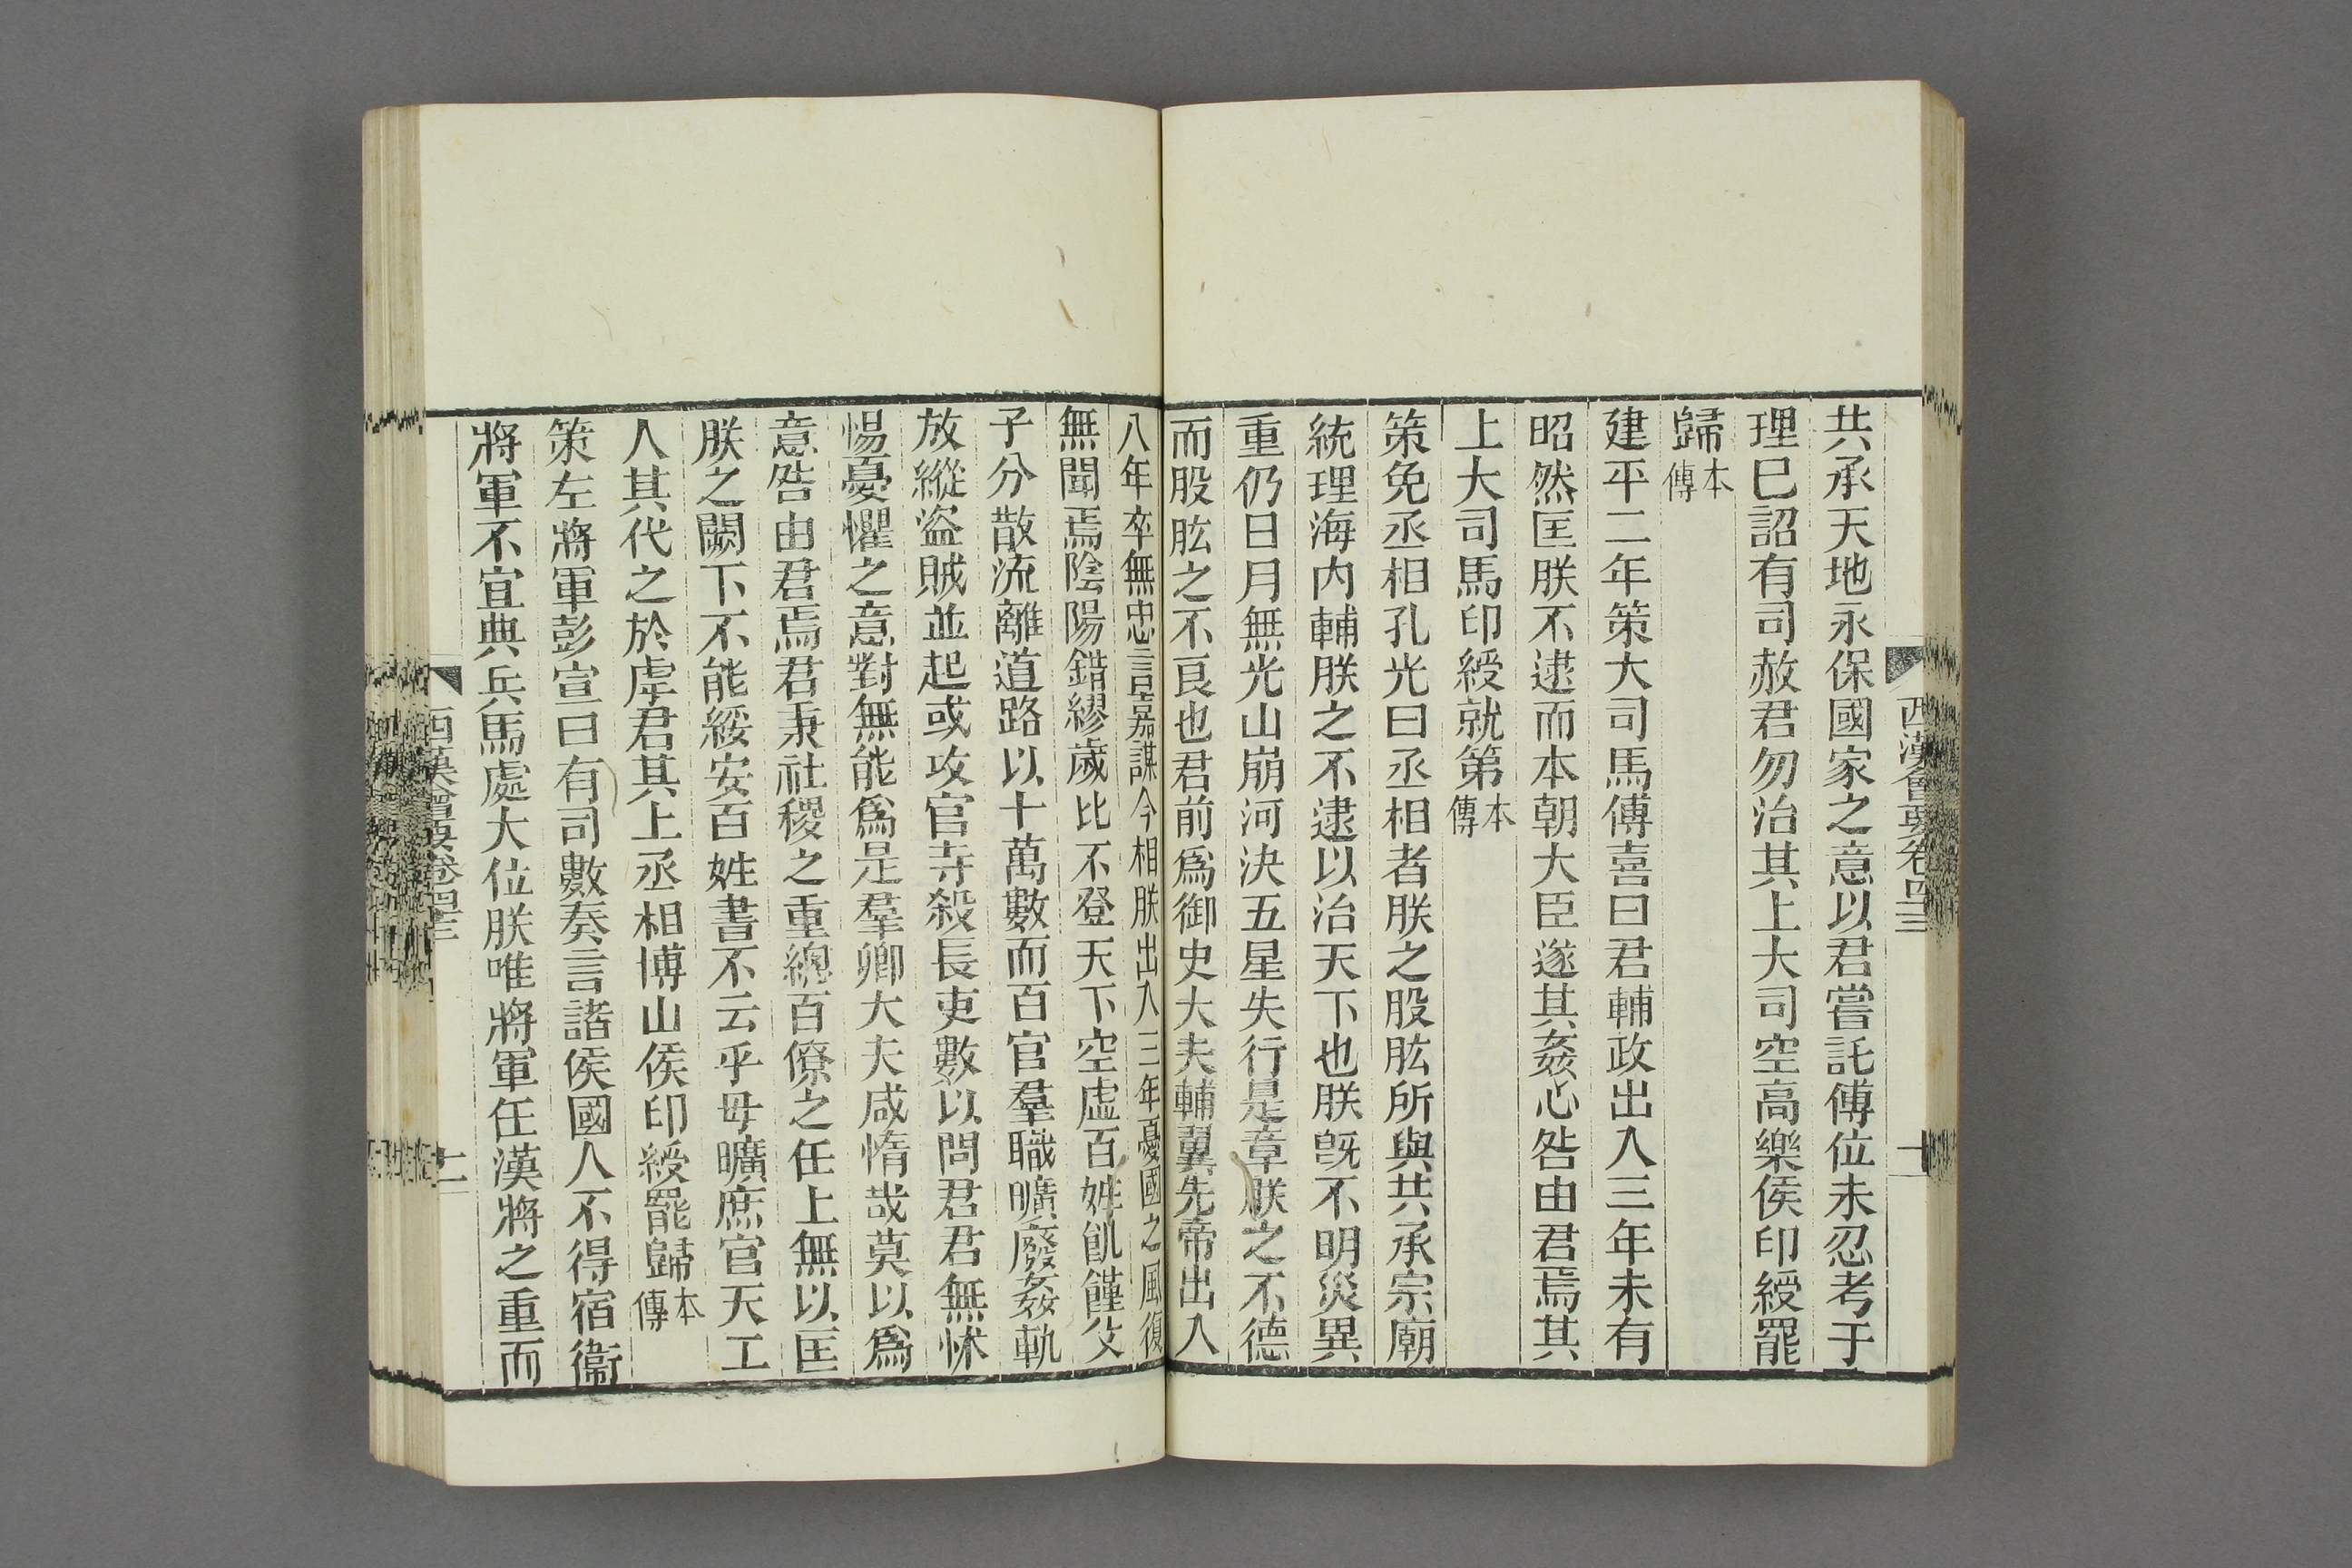 西漢會要卷四十三
十
共承天地永保國家之意以君嘗託傅位未忍考于
理巳詔有司赦君勿治其上大司空高樂侯印綬罷
歸本傳
建平二年策大司馬傅喜曰君輔政出入三年未有
昭然匡朕不逮而本朝大臣遂其姦心咎由君焉其
上大司馬印綬就第本傳
策免丞相孔光曰丞相者朕之股肱所與共承宗廟
統理海内輔朕之不逮以治天下也朕旣不明災異
重仍日月無光山崩河決五星失行是章朕之不德
而股肱之不良也君前爲御史大夫輔翼先帝出入
八年卒無忠言嘉謀今相朕出入三年憂國之風復
無聞焉陰陽錯繆歲比不登天下空虛百姓飢饉父
子分散流離道路以十萬數而百官羣職曠廢姦軌
放縱盜賊並起或攻官寺殺長吏數以問君君無怵
惕憂懼之意對無能爲是羣卿大夫咸惰哉莫以爲
意咎由君焉君秉社稷之重總百僚之任上無以匡
朕之闕下不能綏安百姓書不云乎毋曠庶官天工
人其代之於虖君其上丞相博山侯印綬罷歸本傳
策左將軍彭宣曰有司數奏言諸侯國人不得宿衞
將軍不宜典兵馬處大位朕唯將軍任漢將之重而
西漢會要卷四十三